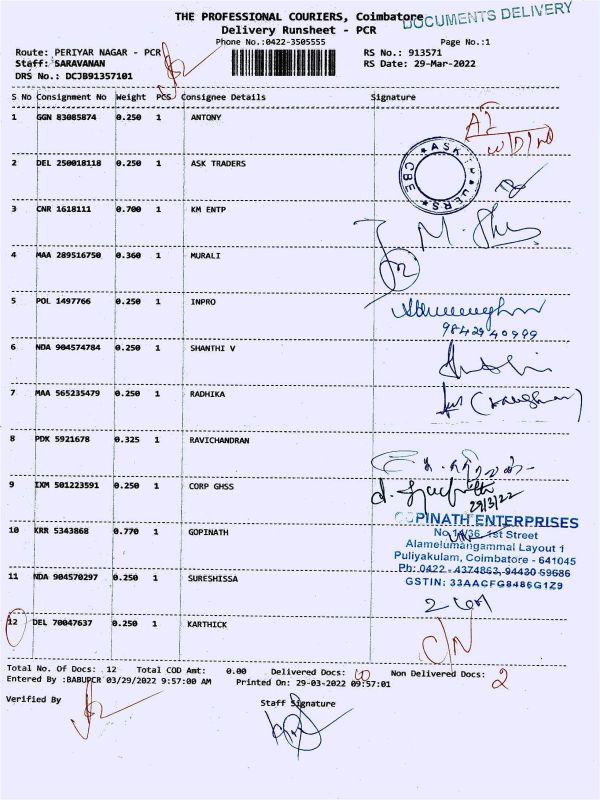 DOCUMENTS DELIVERY
THE PROFESSIONAL COURIERS, Coimbatore
Delivery Runsheet - PCR
Phone No.:0422-3505555 Page No.:1
Route: PERIYAR NAGAR - PCR RS No.: 913571
Staff: SARAVANAN RS Date: 29-Mar-2022
DRS No.: DCJB91357101
S No Consignment No Weight PCS Consignee Details Signature
1 GGN 83085874 0.250 1 ANTONY
2 DEL 250018118 0.250 1 ASK TRADERS
ASK
CBE
3 CNR 1618111 0.700 1 KM ENTP
4 MAA 289516750 0.360 1 MURALI
5 POL 1497766 0.250 1 INPRO
9842940999
6 NDA 904574784 0.250 1 SHANTHI V
7 MAA 565235479 0.250 1 RADHIKA
8 PDK 5921678 0.325 1 RAVICHANDRAN
9 IXM 501223591 0.250 1 CORP GHSS
29/3/22
10 KRR 5343868 0.770 1 GOPINATH
GOPINATH ENTERPRISES
1st Street
Alamelumangammal Layout 1
Puliyakulam, Coimbatore - 641045
Ph: 0422 - 4374863, 94430 59686
GSTIN: 33AACFG8486G1Z9
11 NDA 904570297 0.250 1 SURESHISSA
12 DEL 70047637 0.250 1 KARTHICK
C/N
Total No. Of Docs: 12 Total COD Amt: 0.00 Delivered Docs: 10 Non Delivered Docs: 2
Entered By :BABUPCR 03/29/2022 9:57:00 AM Printed On: 29-03-2022 09:57:01
Verified By Staff Signature